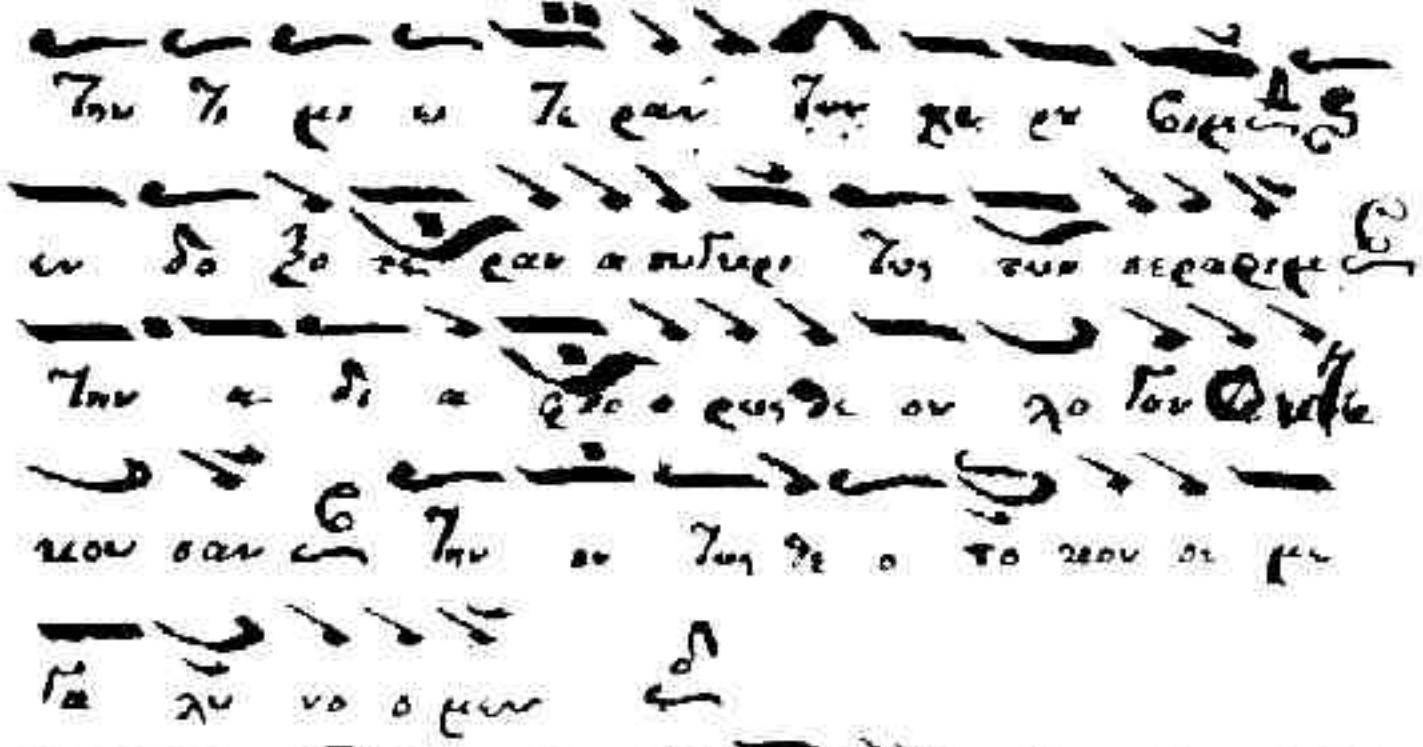 Την τι μι ω τε ραν των χε ρυ βιμ
εν δο ξο τε ραν α συγκρι τως των σεραφιμ
την α δι α φθο ο ρως θε ον λο γον
κου σαν την ον τως θε ο το κον σε με
γα λυ νο ο μεν